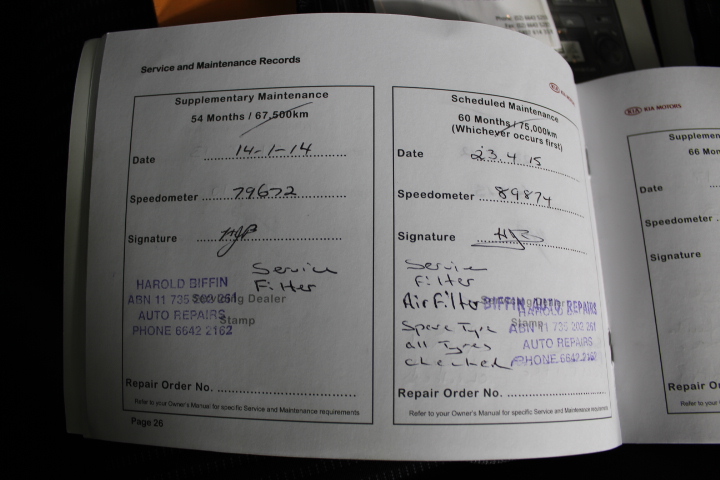 Service and Maintenance Records
Supplementary Maintenance
54 Months / 67,500km
Date 14-1-14
Speedometer 79672
Signature
Service
Filter
HAROLD BIFFIN
ABN 11 735 203 251
Servicing Dealer
AUTO REPAIRS
Stamp
PHONE 6642 2162
Repair Order No.
Refer to your Owner's Manual for specific Service and Maintenance requirements
Page 26
KIA MOTORS
Scheduled Maintenance
60 Months / 75,000km
(Whichever occurs first)
Date 23.4.15
Speedometer 89874
Signature
Service
Filter
Air Filter
BIFFIN AUTO REPAIRS
HAROLD BIFFIN
Spare Tyre
Stamp
ABN 11 735 203 251
all Tyres
AUTO REPAIRS
checked
PHONE 6642 2162
Repair Order No.
Refer to your Owner's Manual for specific Service and Maintenance requirements
KIA MOTORS
Supplemen
66 Mon
Date
Speedometer
Signature
Repair Or
Refer to your